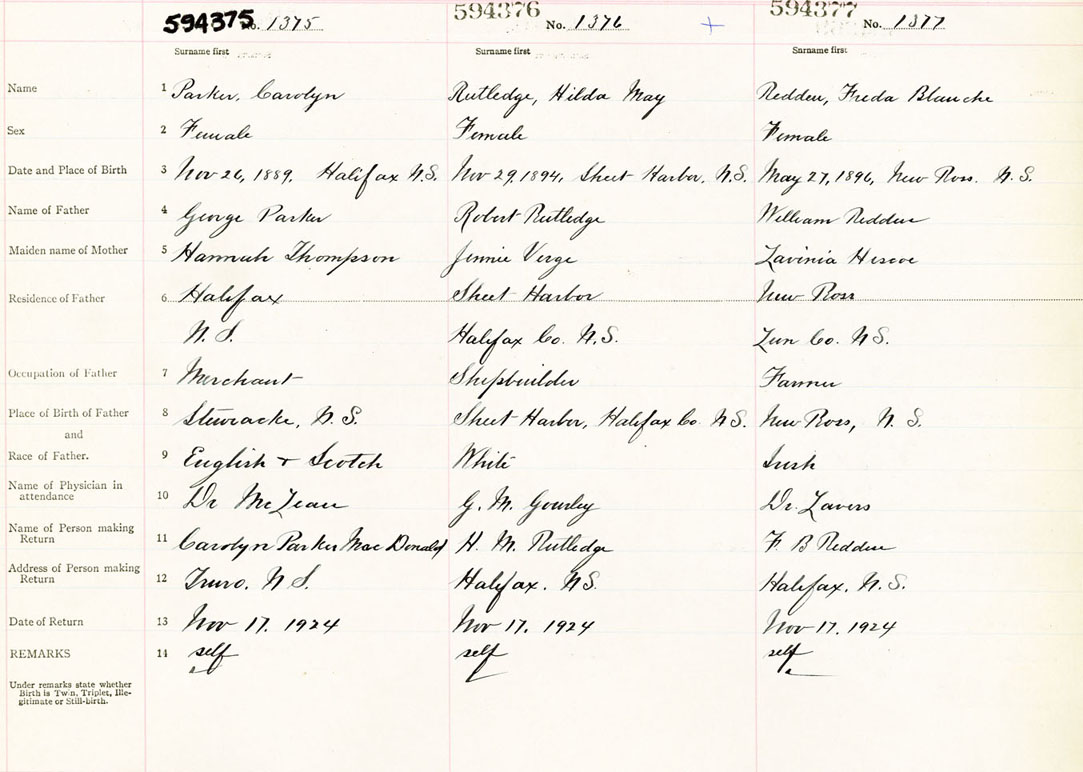 594375 No. 1375
594376 No. 1376 +
594377 No. 1377
Surname first Surname first Surname first
Name 1 Parker, Carolyn Rutledge, Hilda May Redden, Freda Blanche
Sex 2 Female Female Female
Date and Place of Birth 3 Nov 26, 1889, Halifax N.S. Nov 29, 1894, Sheet Harbor, N.S. May 27, 1896, New Ross. N.S.
Name of Father 4 George Parker Robert Rutledge William Redden
Maiden name of Mother 5 Hannah Thompson Jennie Verge Lavinia Hiscoe
Residence of Father 6 Halifax Sheet Harbor New Ross
N.S. Halifax Co. N.S. Lun Co. N.S.
Occupation of Father 7 Merchant Shipbuilder Farmer
Place of Birth of Father 8 Stewiacke, N.S. Sheet Harbor, Halifax Co. N.S. New Ross, N.S.
and
Race of Father. 9 English + Scotch White Irish
Name of Physician in
attendance 10 Dr McLean G. M. Gourley Dr. Lavers
Name of Person making
Return 11 Carolyn Parker MacDonald H. M. Rutledge F. B Redden
Address of Person making
Return 12 Truro. N.S. Halifax. N.S. Halifax. N.S.
Date of Return 13 Nov 17. 1924 Nov 17. 1924 Nov 17. 1924
REMARKS 14 self self self
Under remarks state whether
Birth is Twin, Triplet, Ille-
gitimate or Still-birth.